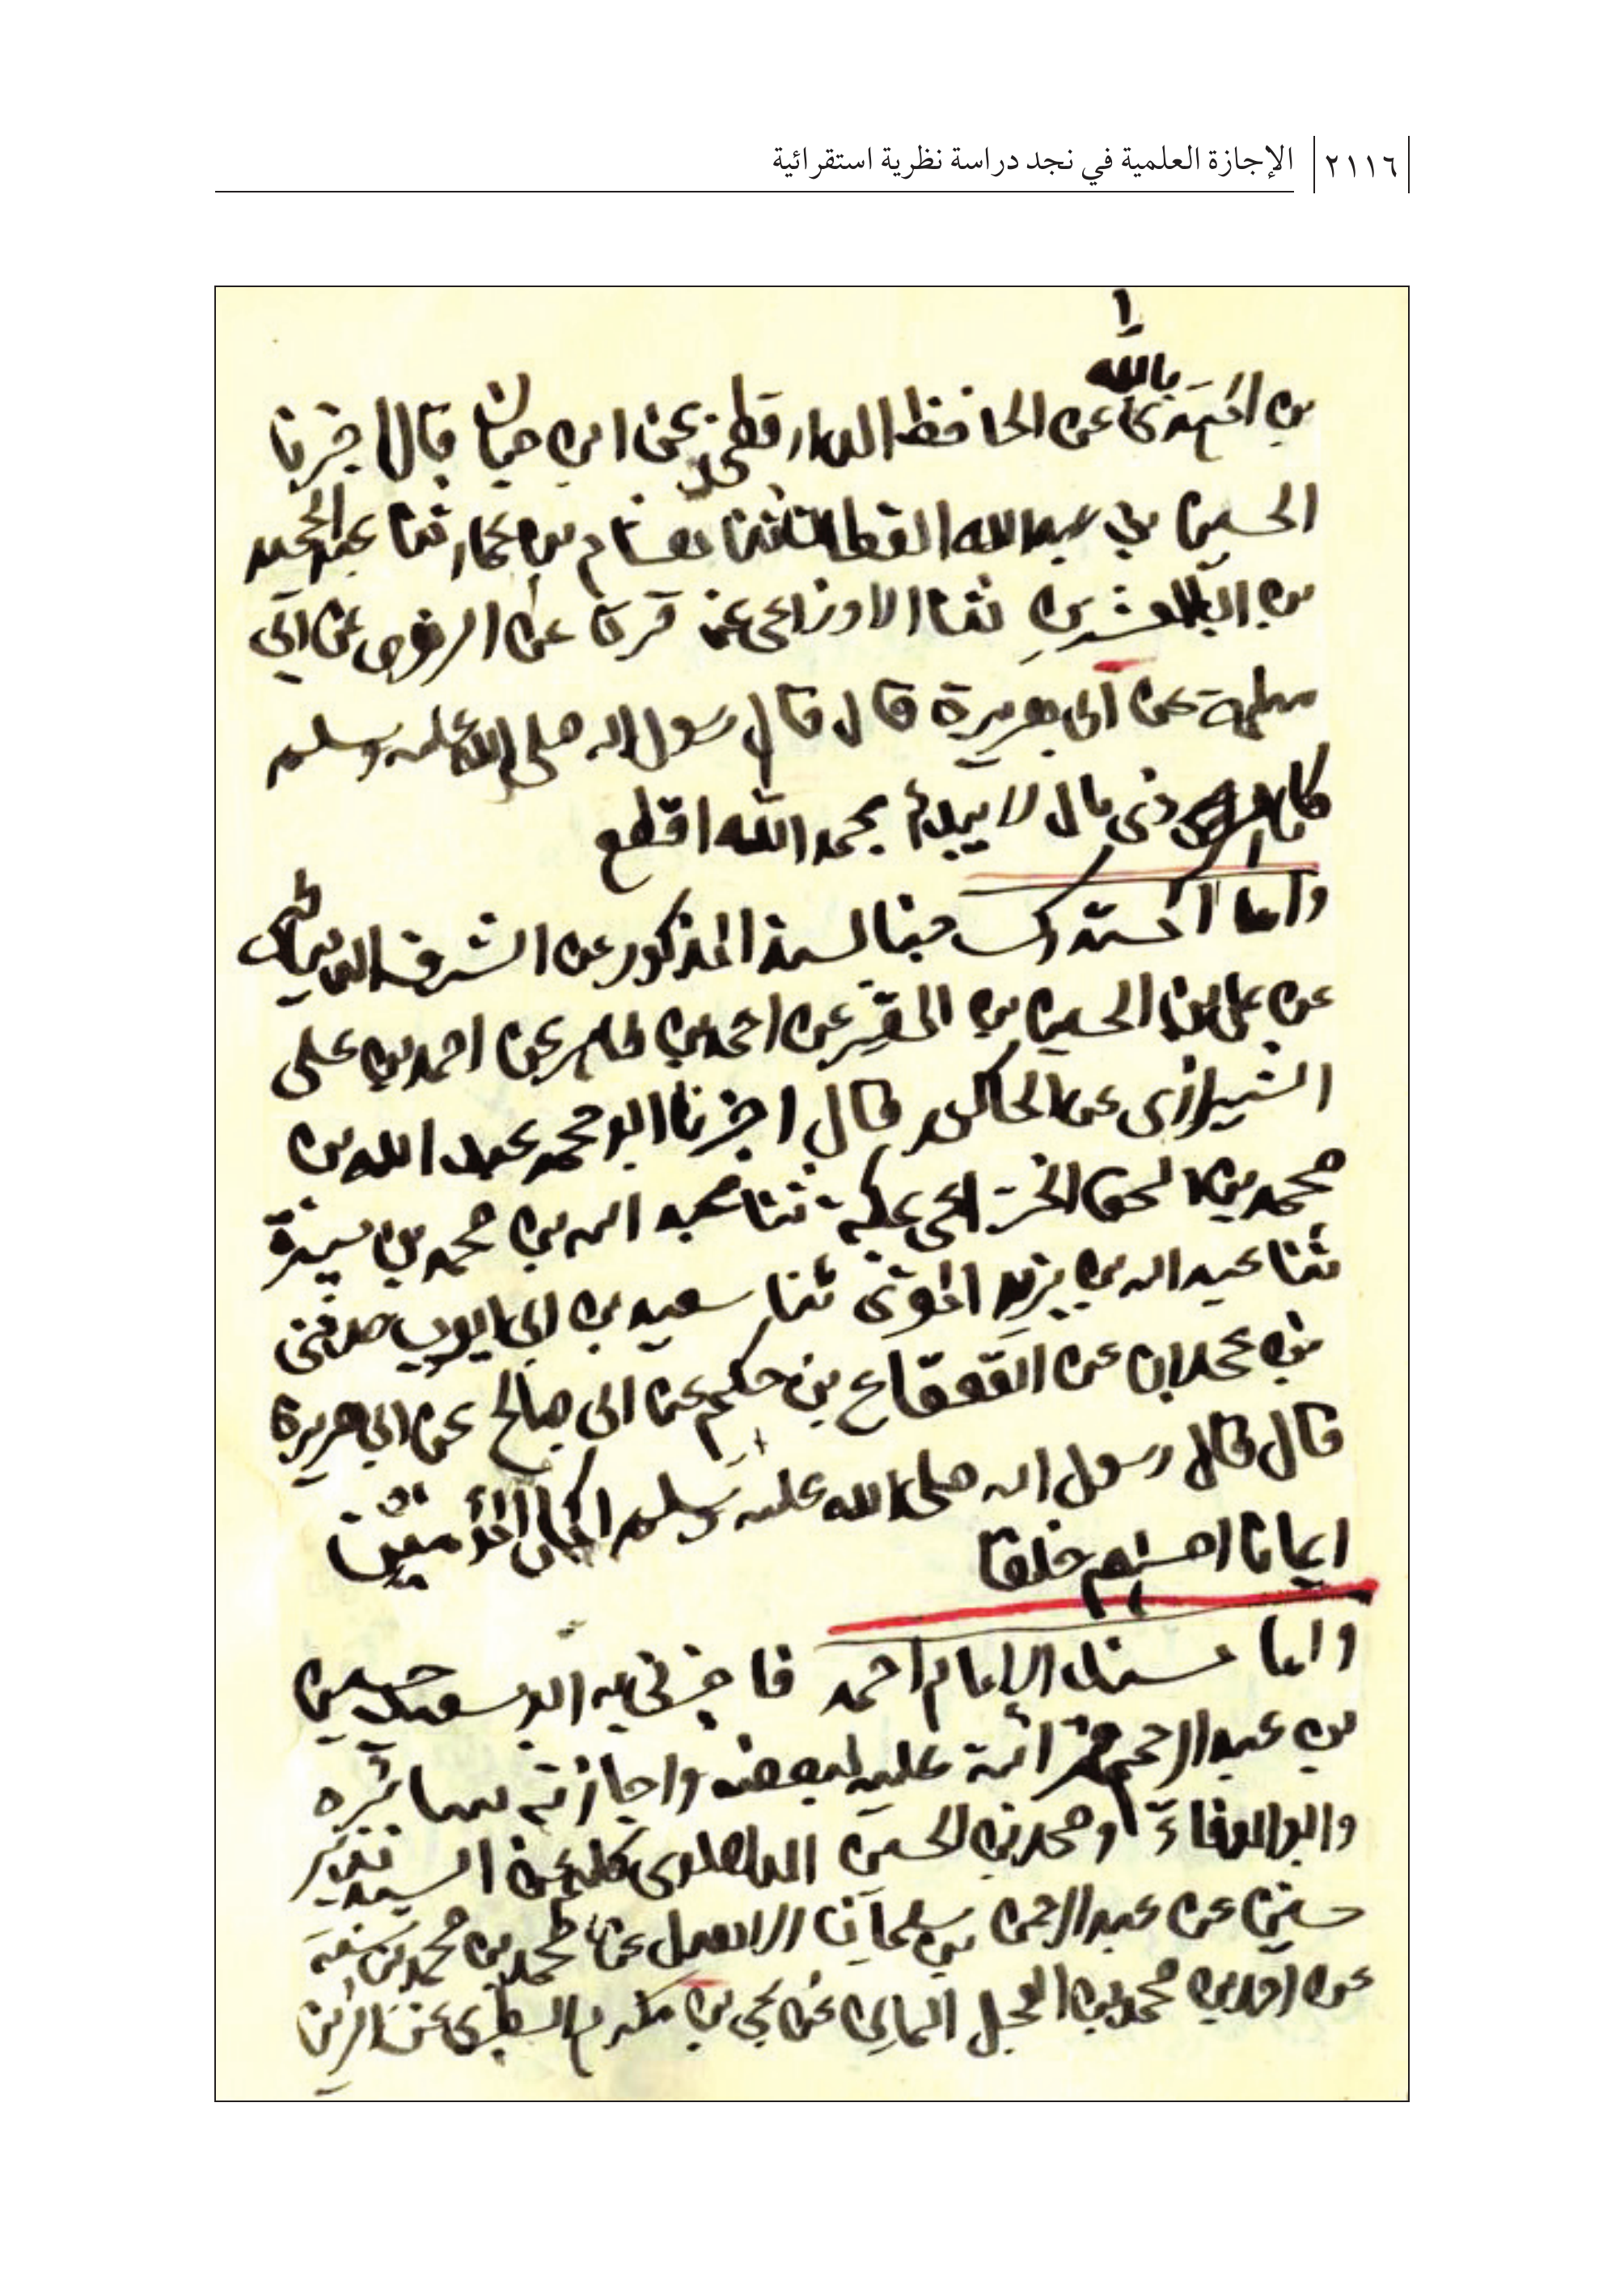 ٢١١٦ الإجازة العلمية في نجد دراسة نظرية استقرائية
١
بالله
بن المهتدى عن الحافظ الدارقطني عن ابن حبان قال اخبرنا
الحسين بن عبدالله القطان ثنا هشام بن عمار ثنا عبدالحميد
بن العشرين ثنا الاوزاعى عن قرة عن الزهرى عن ابي
سلمة عن ابي هريرة قال قال رسول الله صلى الله عليه وسلم
كل امر ذى بال لا يبدأ بحمد الله اقطع
واما المستدرك فبالسند المذكور عن الشرف الدمياطى
عن على بن الحسين بن المقير عن احمد بن طاهر عن احمد بن على
الشيرازى عن الحاكم قال اخبرنا ابو محمد عبد الله بن
محمد بن اسحق الخزاعى بمكة ثنا عبد الله بن محمد بن ميسرة
ثنا عبد الله بن يزيد المقرى ثنا سعيد بن ابي ايوب حدثنى
بن عجلان عن القعقاع بن حكيم عن ابي صالح عن ابي هريرة
قال قال رسول الله صلى الله عليه وسلم اكمل المؤمنين
ايمانا احسنهم خلقا
واما مسند الإمام احمد فاخبرنى به ابو سعيد حسين
بن عبد الرحيم قرائة عليه لبعضه واجازته سائره
وابو الوفاء ومحمد بن الحسين الدهلوى كلهم عن السيد نذير
حسين عن عبد الرحمن بن سليمان الاهدل عن محمد بن محمد بن سنة
عن احمد بن محمد بن العجل اليمانى عن يحيى بن مكرم الطبرى عن الزين